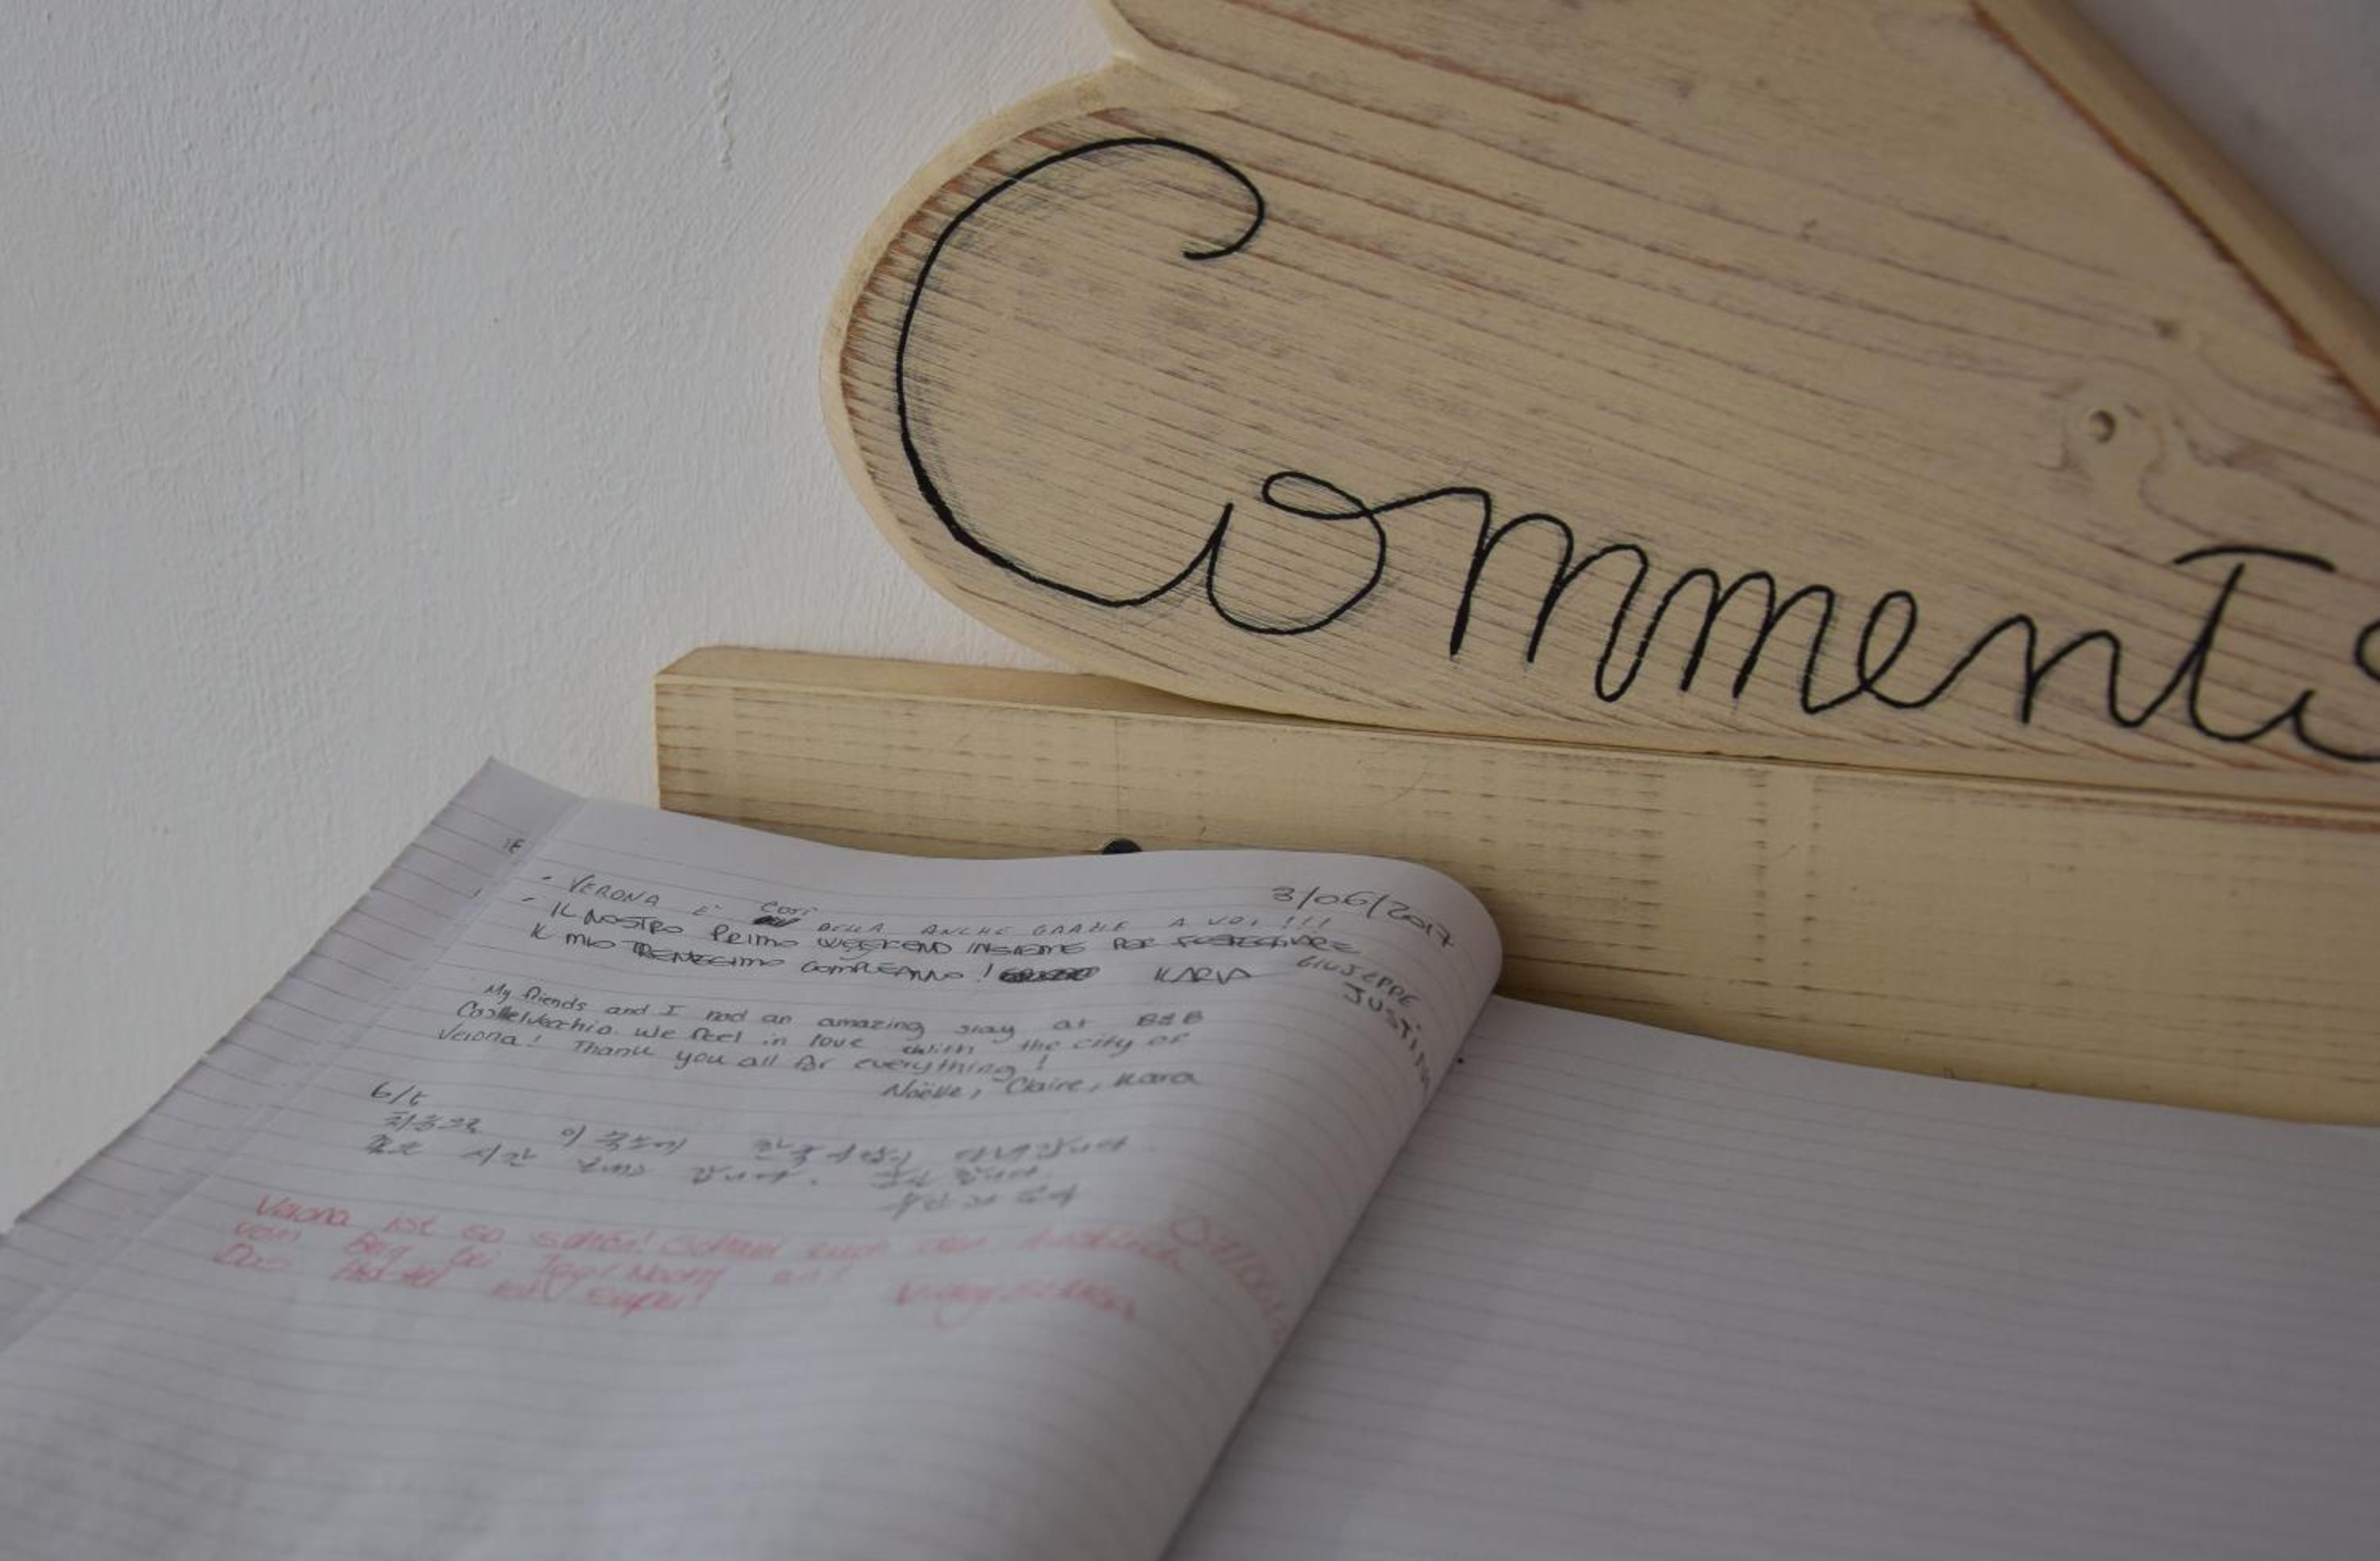 Comments
3/06/2017
- VERONA E' COSÌ BELLA ANCHE GRAZIE A VOI !!!
- IL NOSTRO PRIMO WEEKEND INSIEME PER FESTEGGIARE
IL MIO TRENTESIMO COMPLEANNO ! ILARIA
GIUSEPPE
JUSTIN
My friends and I had an amazing stay at B&B
Castelvecchio. We feel in love with the city of
Verona! Thank you all for everything!
Noëlle, Claire, Kara
6/5
처음으로 이 숙소에
좋은 시간 갑니다.
Verona ist so schön! Schaut euch den Ausblick
vom Berg bei
Das Hostel ist super!